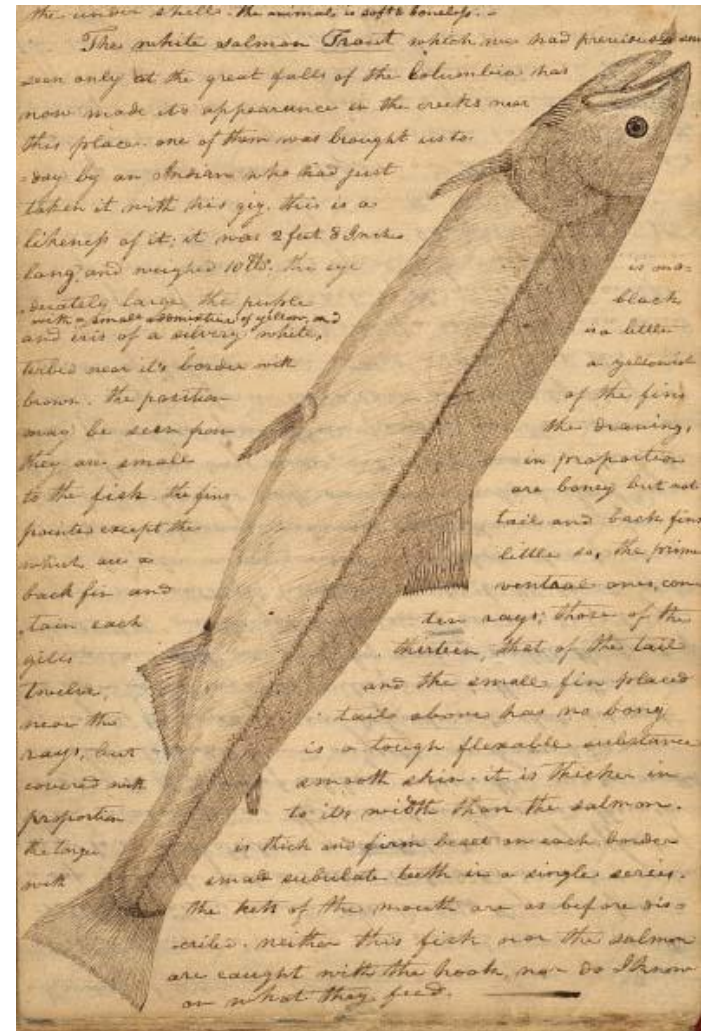 the under shell. the animal is soft & boneless. –
The white salmon Trout which we had previously seen
seen only at the great falls of the Columbia has
now made it's appearance in the creeks near
this place. one of them was brought us to
-day by an Indian who had just
taken it with his gig. this is a
likeness of it; it was 2 feet 8 Inches
long, and weighed 10 lbs. the eye is mo-
derately large, the puple black
with a small admixture of yellow, and
and iris of a silvery white, is a little
terbid near it's border with a yellowish
brown. the position of the fins
may be seen from the drawing,
they are small in proportion
to the fish. the fins are boney but not
pointed except the tail and back fins
which are a little so, the prime
back fin and ventral ones, con
-tain each ten rays; those of the
gills thirteen, that of the tail
twelve, and the small fin placed
near the tail above has no bony
rays, but is a tough flexable substance
covered with smooth skin. it is thicker in
proportion to it's width than the salmon.
the tongue is thick and firm beset on each border
with small subulate teeth in a single series.
the teeth of the mouth are as before dis-
-cribed. neither this fish nor the salmon
are caught with the hook, nor do I know
on what they feed.